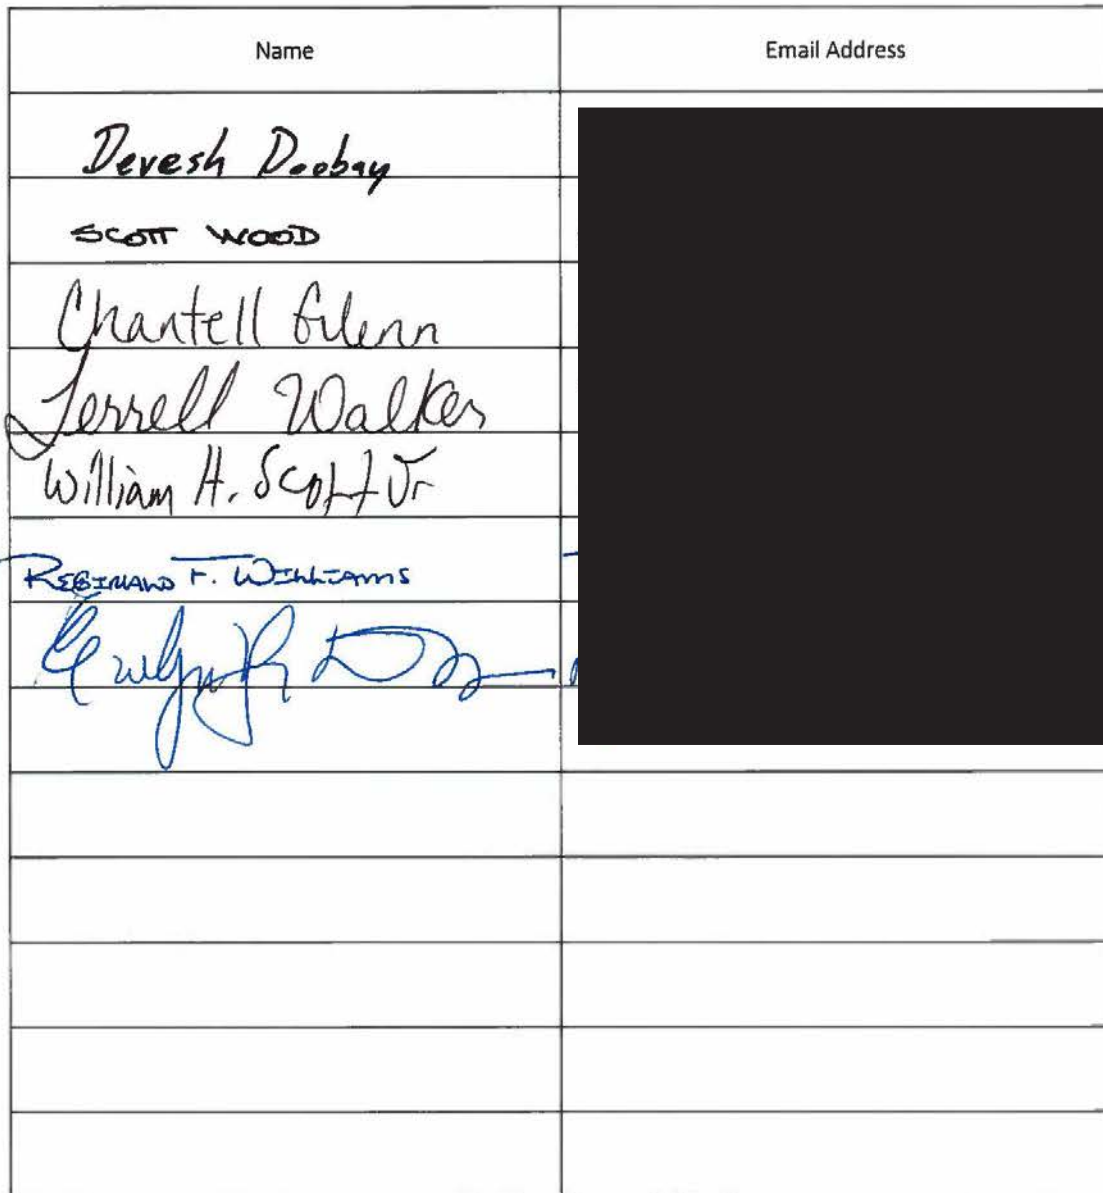 Name Email Address
Devesh Doobay
SCOTT WOOD
Chantell Glenn
Terrell Walker
William H. Scott Jr
REGINALD F. WILLIAMS